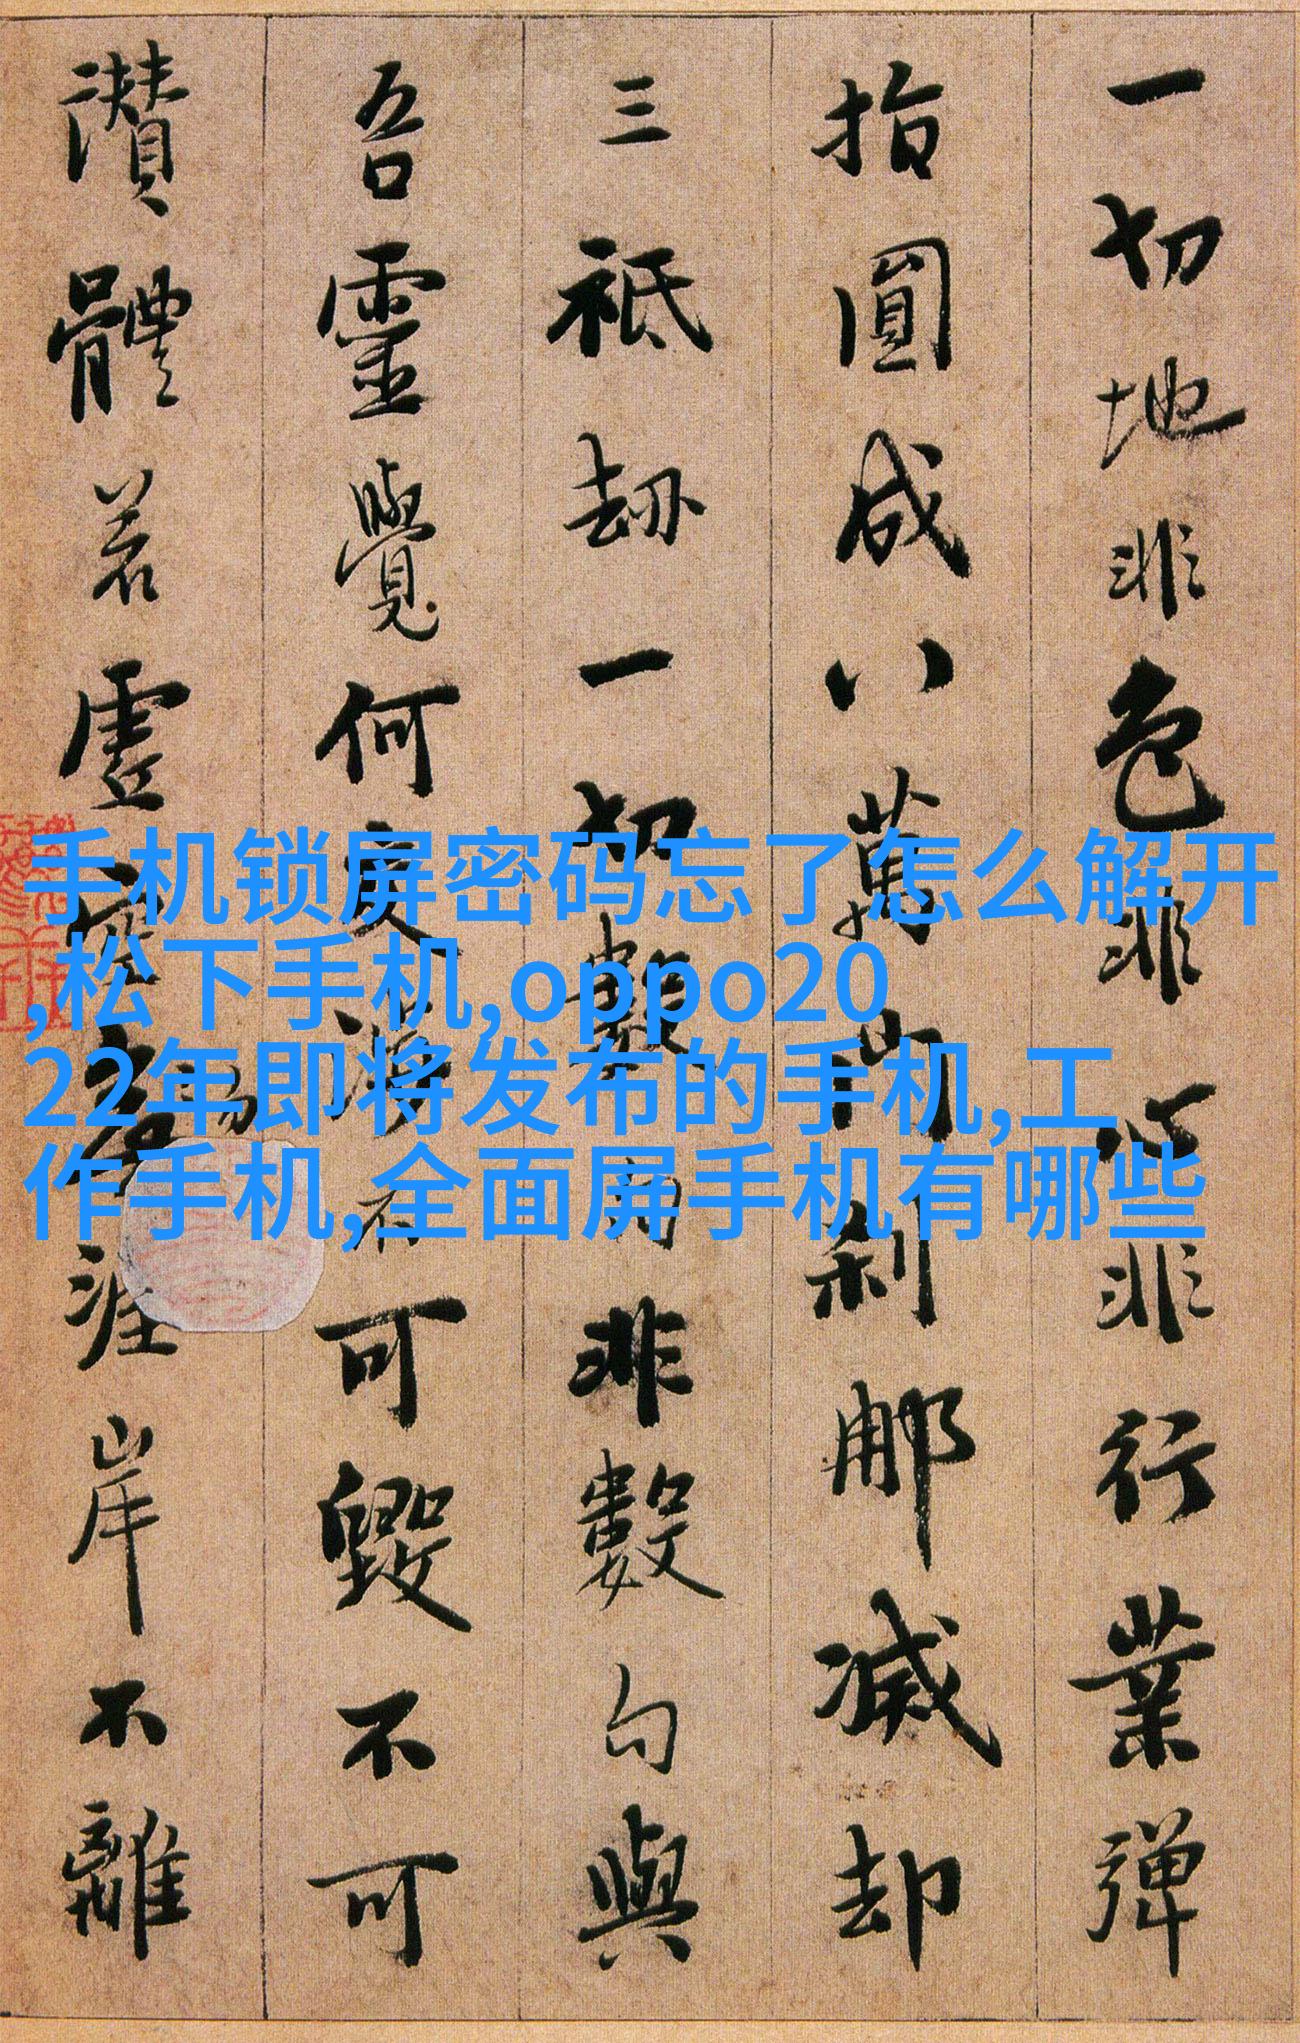 一切地非色非心非行業弾
指圓成八萬門刹那滅却
三祇劫一切數句非數句與
吾靈覺何交涉不可毀不可
讃體若虛空勿涯岸不離
手机锁屏密码忘了怎么解开
,松下手机,oppo20
22年即将发布的手机,工
作手机,全面屏手机有哪些